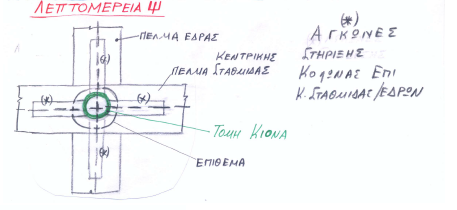 ΛΕΠΤΟΜΕΡΕΙΑ Ψ
ΠΕΛΜΑ ΕΔΡΑΣ
ΚΕΝΤΡΙΚΗΣ
ΠΕΛΜΑ ΣΤΑΘΜΙΔΑΣ
(*)
(*)
(*)
(*)
ΤΟΜΗ ΚΙΟΝΑ
ΕΠΙΘΕΜΑ
(*)
ΑΓΚΩΝΕΣ
ΣΤΗΡΙΞΗΣ
ΚΟΛΩΝΑΣ ΕΠΙ
Κ.ΣΤΑΘΜΙΔΑΣ/ΕΔΡΩΝ